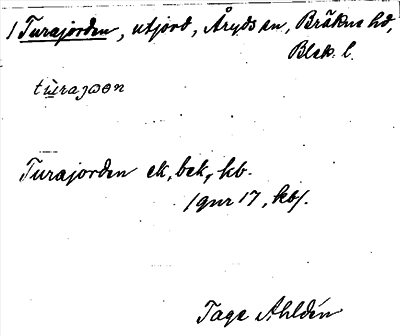 / Turajorden, utjord, Åryds sn, Bräkne hd,
Blek. l.
tùrajɷɷn
Turajorden ek, bek, hb.
/gnr 17, kb/.
Tage Ahldén